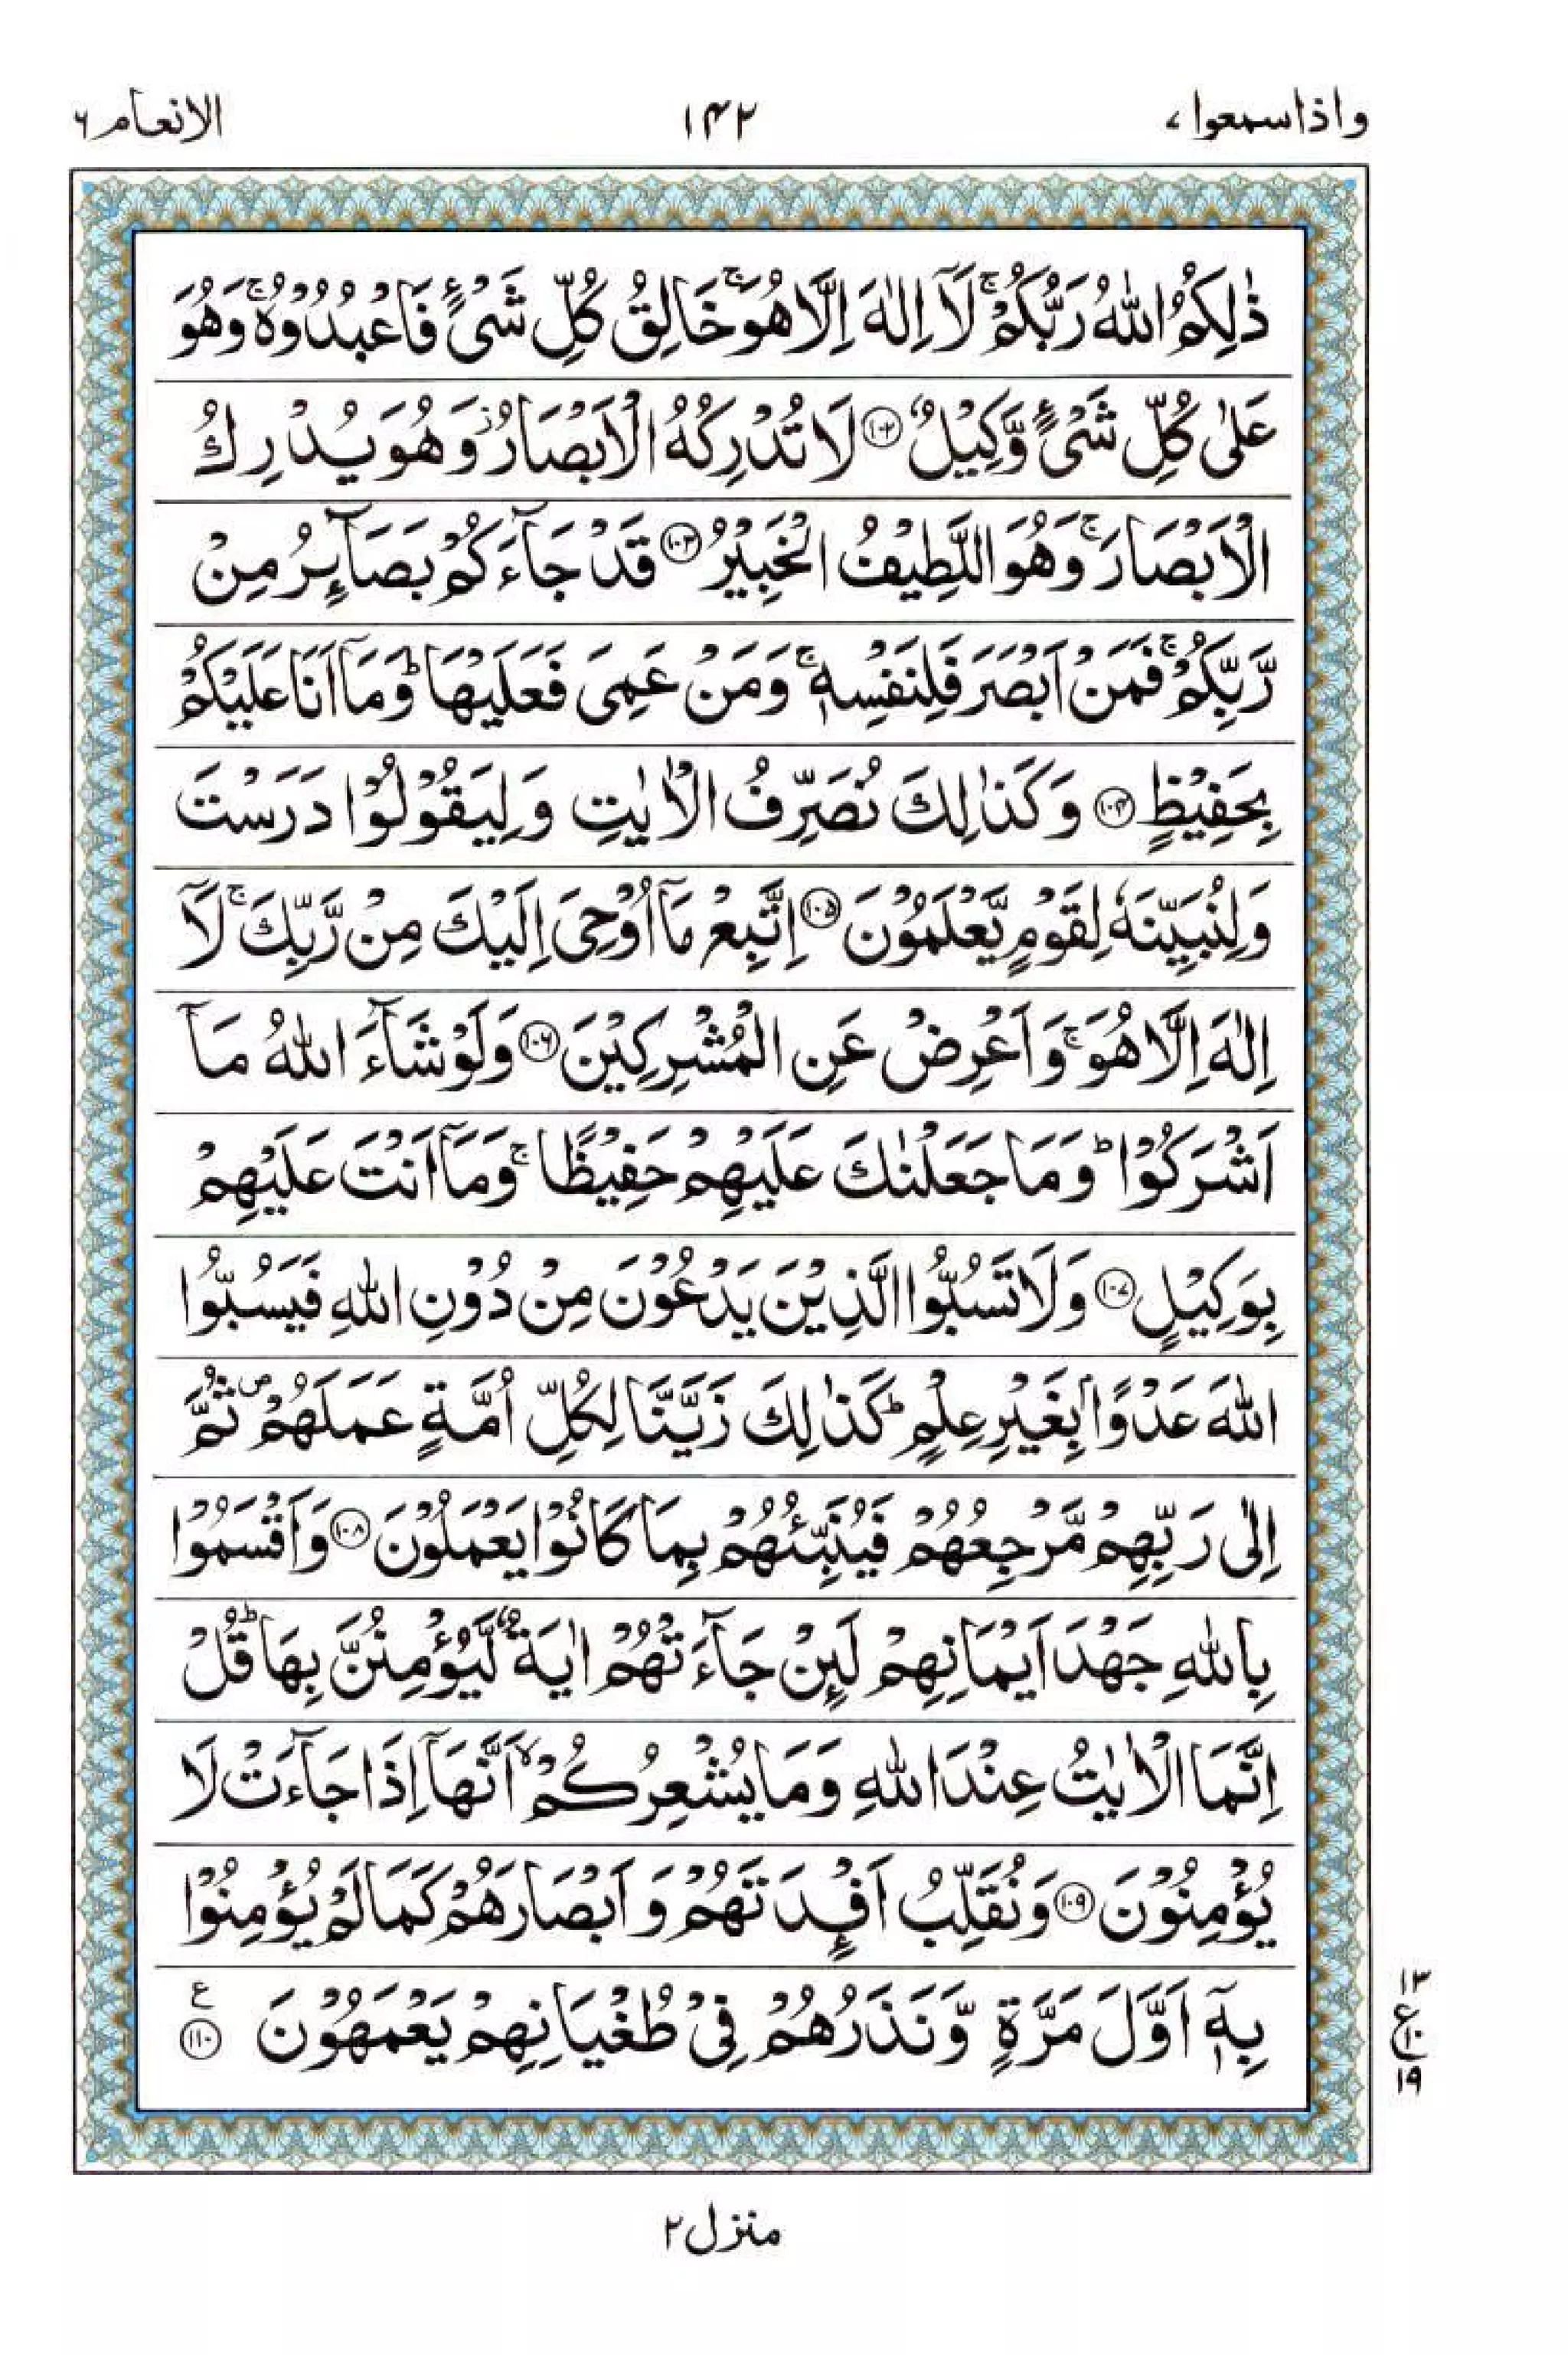 واذاسمعوا ۷ ۱۴۲ الانعام ۶
ذٰلِكُمُ اللّٰهُ رَبُّكُمْ ۚ لَاۤ اِلٰهَ اِلَّا هُوَ ۚ خَالِقُ كُلِّ شَیْءٍ فَاعْبُدُوْهُ ۚ وَهُوَ
عَلٰی كُلِّ شَیْءٍ وَّكِیْلٌ ﴿۱۰۲﴾ لَا تُدْرِكُهُ الْاَبْصَارُ ؗ وَهُوَ یُدْرِكُ
الْاَبْصَارَ ۚ وَهُوَ اللَّطِیْفُ الْخَبِیْرُ ﴿۱۰۳﴾ قَدْ جَآءَكُمْ بَصَآىِٕرُ مِنْ
رَّبِّكُمْ ۚ فَمَنْ اَبْصَرَ فَلِنَفْسِهٖ ۚ وَمَنْ عَمِیَ فَعَلَیْهَا ؕ وَمَاۤ اَنَا عَلَیْكُمْ
بِحَفِیْظٍ ﴿۱۰۴﴾ وَكَذٰلِكَ نُصَرِّفُ الْاٰیٰتِ وَلِیَقُوْلُوْا دَرَسْتَ
وَلِنُبَیِّنَهٗ لِقَوْمٍ یَّعْلَمُوْنَ ﴿۱۰۵﴾ اِتَّبِعْ مَاۤ اُوْحِیَ اِلَیْكَ مِنْ رَّبِّكَ ۚ لَاۤ
اِلٰهَ اِلَّا هُوَ ۚ وَاَعْرِضْ عَنِ الْمُشْرِكِیْنَ ﴿۱۰۶﴾ وَلَوْ شَآءَ اللّٰهُ مَاۤ
اَشْرَكُوْا ؕ وَمَا جَعَلْنٰكَ عَلَیْهِمْ حَفِیْظًا ۚ وَمَاۤ اَنْتَ عَلَیْهِمْ
بِوَكِیْلٍ ﴿۱۰۷﴾ وَلَا تَسُبُّوا الَّذِیْنَ یَدْعُوْنَ مِنْ دُوْنِ اللّٰهِ فَیَسُبُّوا
اللّٰهَ عَدْوًۢا بِغَیْرِ عِلْمٍ ؕ كَذٰلِكَ زَیَّنَّا لِكُلِّ اُمَّةٍ عَمَلَهُمْ ۪ ثُمَّ
اِلٰی رَبِّهِمْ مَّرْجِعُهُمْ فَیُنَبِّئُهُمْ بِمَا كَانُوْا یَعْمَلُوْنَ ﴿۱۰۸﴾ وَاَقْسَمُوْا
بِاللّٰهِ جَهْدَ اَیْمَانِهِمْ لَىِٕنْ جَآءَتْهُمْ اٰیَةٌ لَّیُؤْمِنُنَّ بِهَا ؕ قُلْ
اِنَّمَا الْاٰیٰتُ عِنْدَ اللّٰهِ وَمَا یُشْعِرُكُمْ ۙ اَنَّهَاۤ اِذَا جَآءَتْ لَا
یُؤْمِنُوْنَ ﴿۱۰۹﴾ وَنُقَلِّبُ اَفْـِٕدَتَهُمْ وَاَبْصَارَهُمْ كَمَا لَمْ یُؤْمِنُوْا
بِهٖۤ اَوَّلَ مَرَّةٍ وَّنَذَرُهُمْ فِیْ طُغْیَانِهِمْ یَعْمَهُوْنَ ع ﴿۱۱۰﴾
۱۳
ع ۱۰
۱۹
منزل ۲